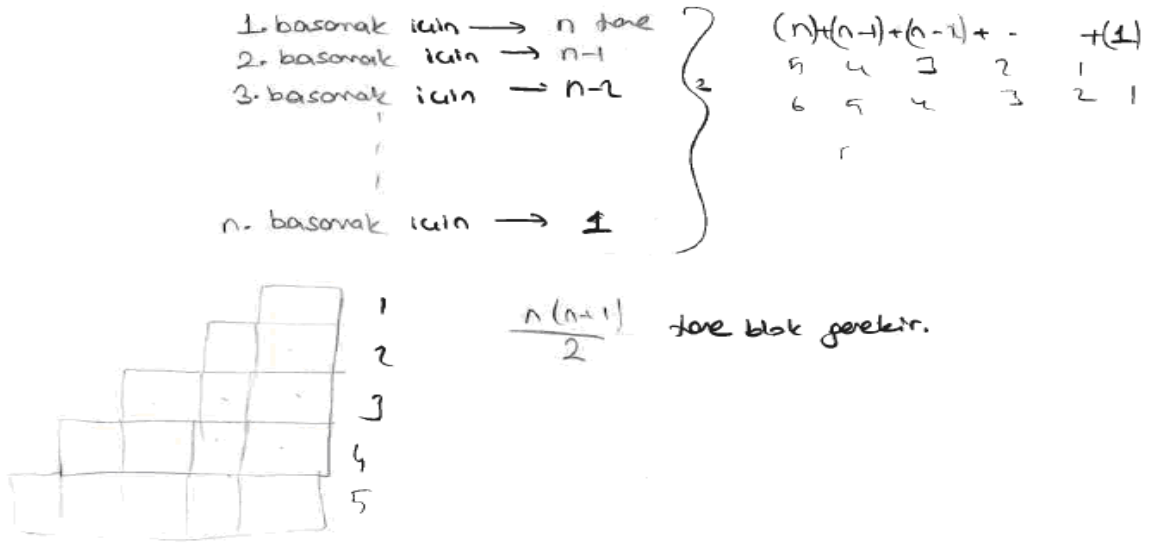 1. basamak için → n tane
2. basamak için → n-1
3. basamak için → n-2
n. basamak için → 1
(n)+(n-1)+(n-2)+ - +(1)
5 4 3 2 1
6 5 4 3 2 1
1
2
3
4
5
n(n+1)/2 tane blok gerekir.